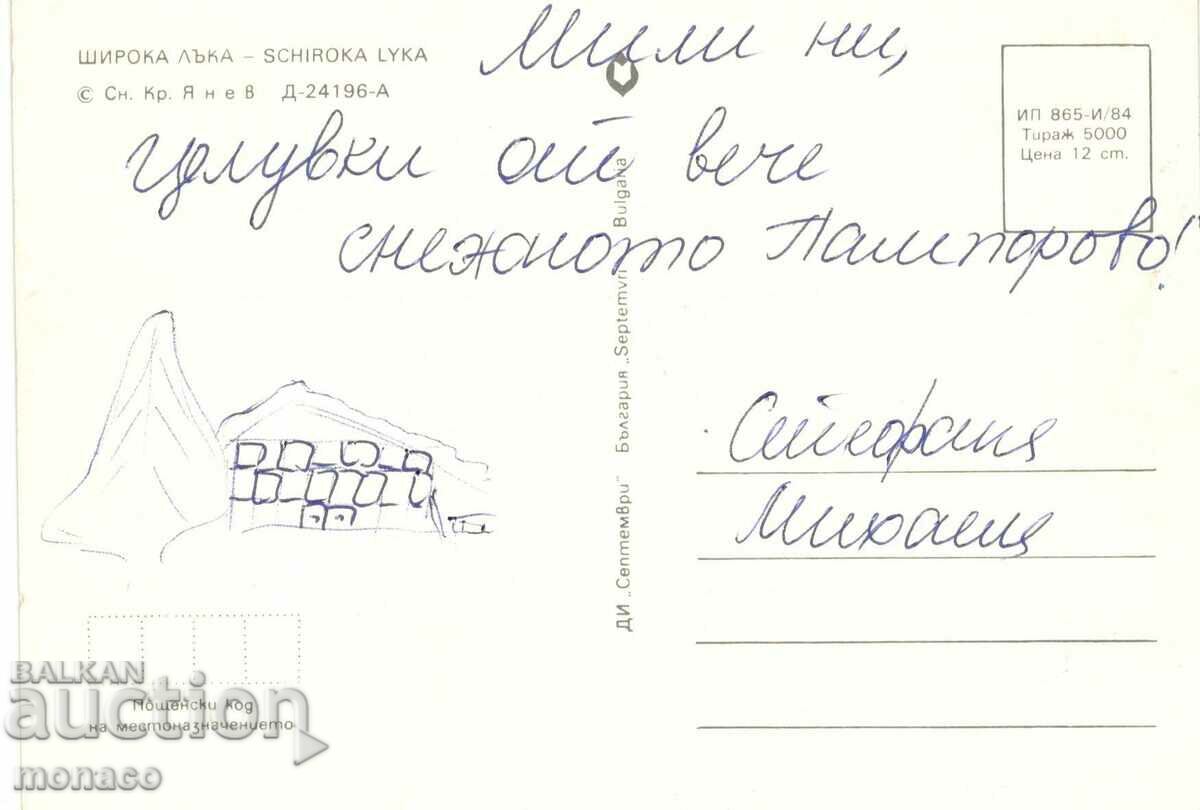 ШИРОКА ЛЪКА – SCHIROKA LYKA
© Сн. Кр. Янев Д-24196-А
Мили ни,
целувки от вече
снежното Пампорово!
ИП 865-И/84
Тираж 5000
Цена 12 ст.
ДИ „Септември" България „Septemvri Bulgaria
Стефания
Михаела
Пощенски код
на местоназначението
BALKAN
auction
monaco